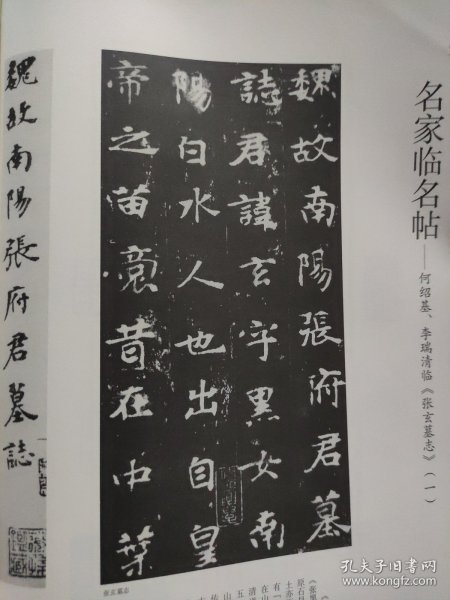 名家临名帖
——何绍基、李瑞清临《张玄墓志》(一)
魏故南陽張府君墓
誌君諱玄字黑女南
陽白水人也出自皇
帝之苗裔昔在中葉
魏故南陽張府君墓誌
张玄墓志
孔夫子旧书网